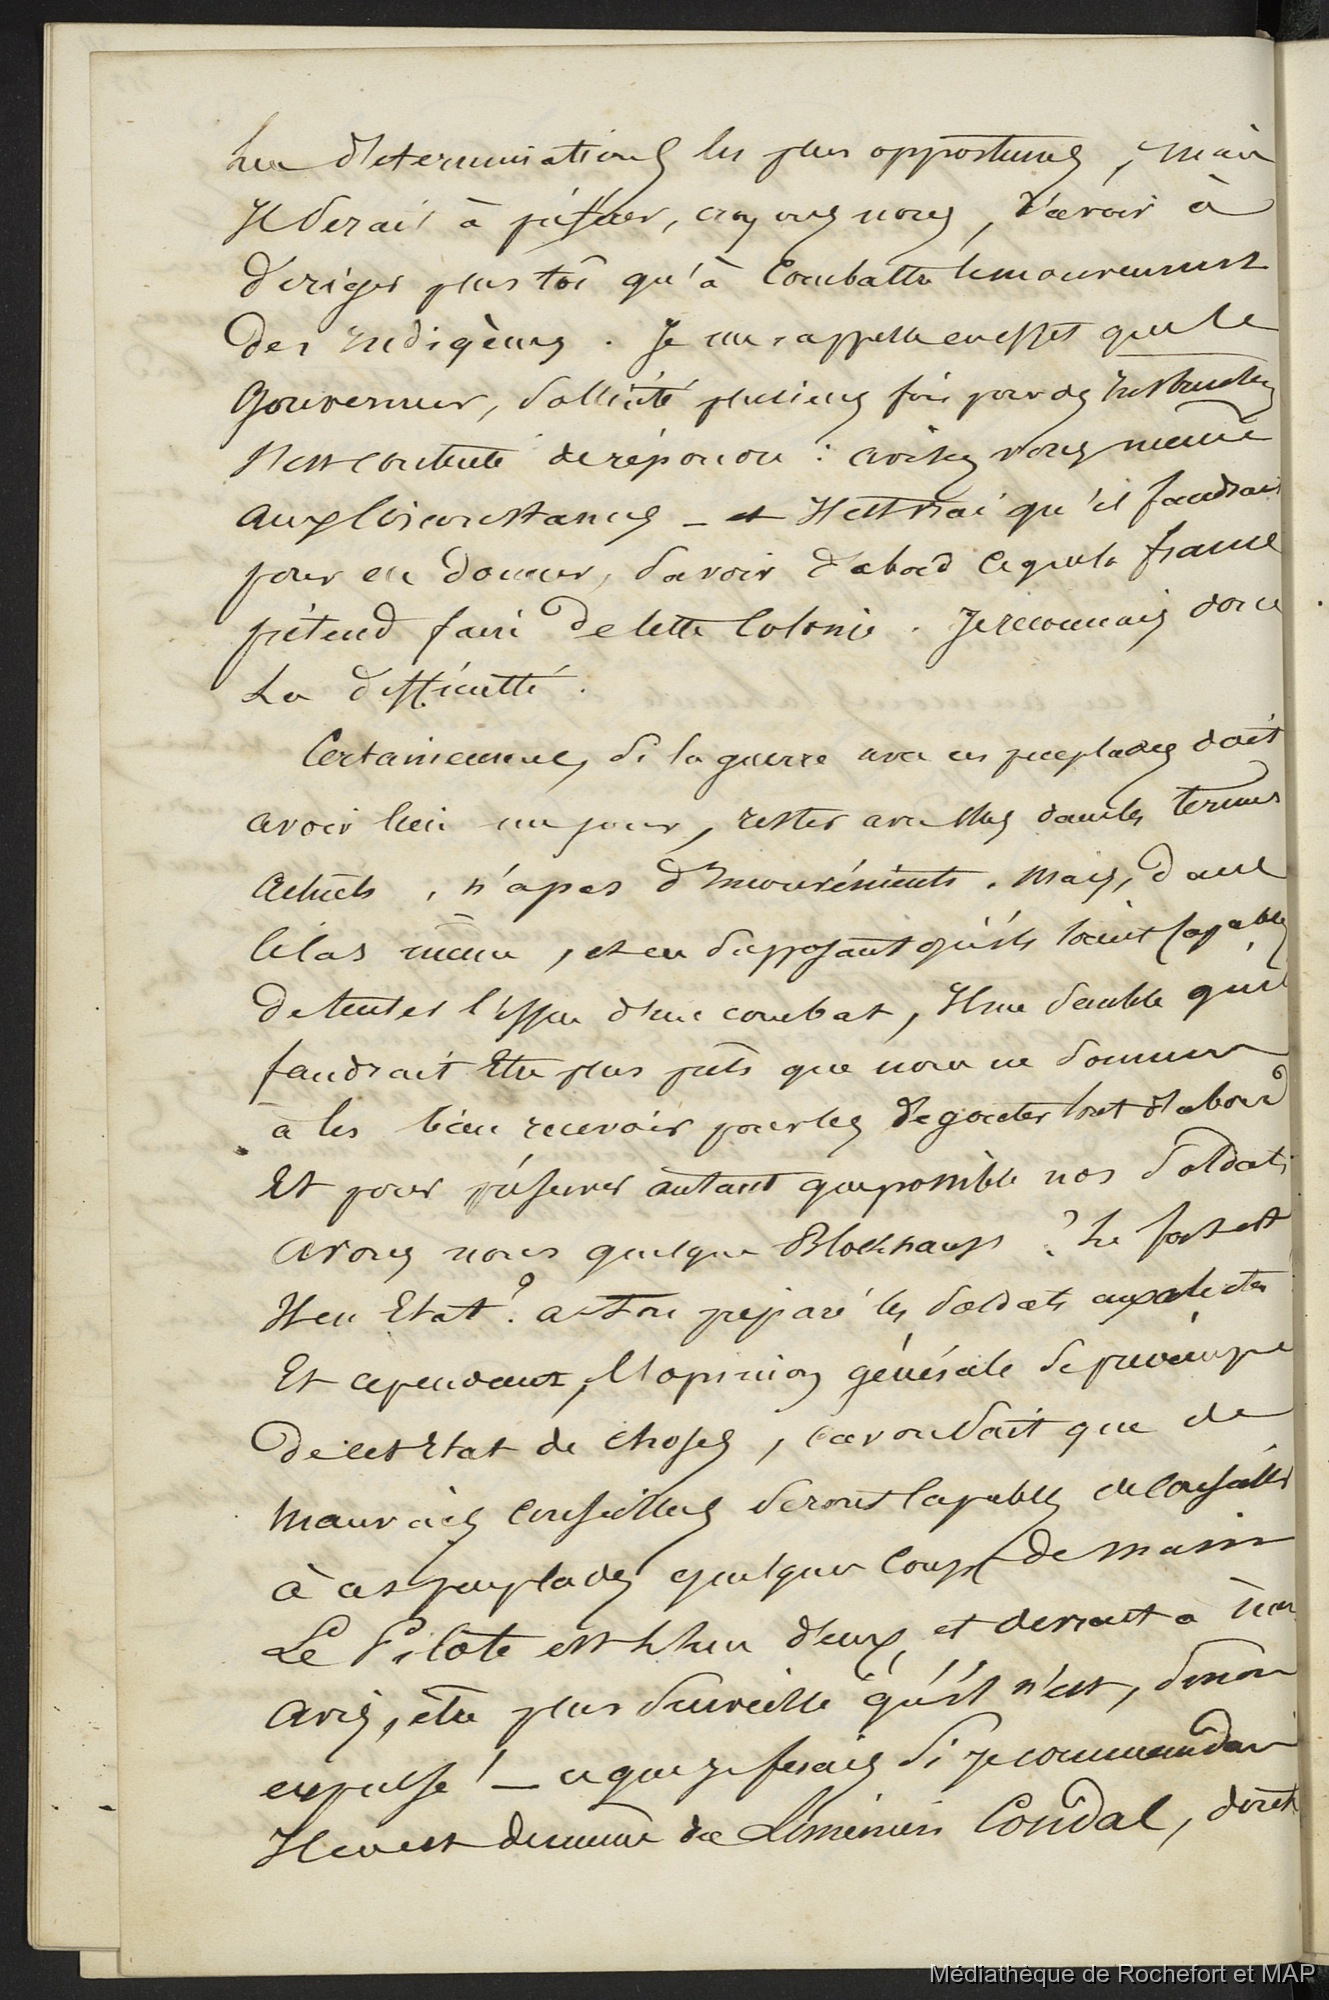 les determinations les plus opportunes, mais
Il serait à préférer, croyons nous, d'avoir à
diriger plus tôt qu'à Combattre le mouvement
des Indigènes. Je me rappelle en effet que le
Gouverneur, sollicité plusieurs fois pour des Instructions
s'est contenté de répondre : avisez vous même
aux Circonstances _ et Il est vrai qu'il faudrait
pour en donner, savoir d'abord ce que la france
prétend faire de cette Colonie. Je reconnais donc
La difficulté.
Certainement, si la guerre avec ces peuplades doit
avoir lieu un jour, rester avec elles dans les termes
actuels, n'a pas d'Inconvénients. Mais, dans
Ce Cas même, et en supposant qu'ils soient Capables
de tenter l'issue d'un combat, Il me semble qu'il
faudrait Etre plus prêts que nous ne sommes
à les bien recevoir pour les dégouter tout d'abord
Et pour préserver autant que possible nos soldats
avons nous quelque Blockhaus ? Le fort est
Il en Etat ? a-t-on préparé les soldats aux alertes
Et cependant, l'opinion générale se préoccupe
de cet Etat de choses, car on sait que de
Mauvais Conseillers seront Capables de Conseiller
à ces peuplades quelques Coups de main
Le Pilote est l'un d'eux, et devrait à mon
avis, être plus surveillé qu'il n'est, sinon
expulsé ! _ ce que je ferais si je commandais
Il en est de même de Liménien Condal, dont